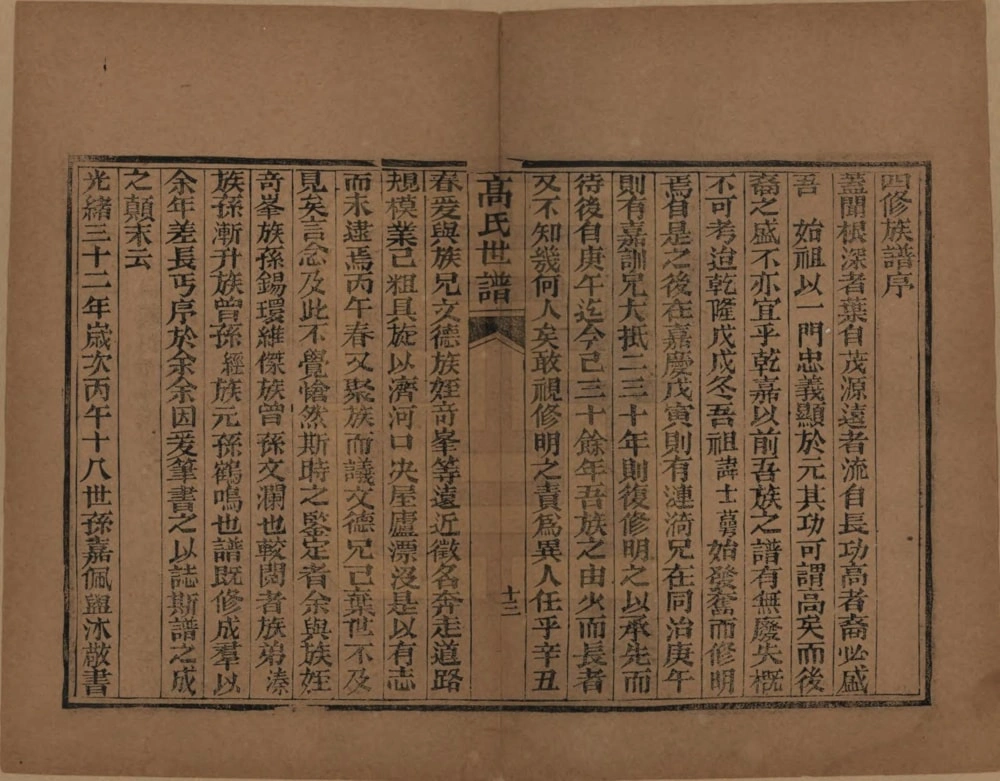 四修族譜序
蓋聞根深者葉自茂源遠者流自長功高者裔必盛
吾　始祖以一門忠義顯於元其功可謂高矣而後
裔之盛不亦宜乎乾嘉以前吾族之譜有無廢失概
不可考迨乾隆戊戌冬吾祖諱士蕚始發奮而修明
焉自是之後在嘉慶戊寅則有漣漪兄在同治庚午
則有嘉訓兄大抵二三十年則復修明之以承先而
待後自庚午迄今已三十餘年吾族之由少而長者
又不知幾何人矣敢視修明之責為異人任乎辛丑
高氏世譜
十三
春爰與族兄文德族姪奇峯等遠近徵名奔走道路
規模業已粗具旋以濟河口决屋廬漂沒是以有志
而未逮焉丙午春又聚族而議文德兄已棄世不及
見矣言念及此不覺愴然斯時之鑒定者余與族姪
奇峯族孫錫環維傑族曾孫文瀾也較閱者族弟溱
族孫漸升族曾孫經族元孫鶴鳴也譜既修成羣以
余年差長丐序於余余因爰筆書之以誌斯譜之成
之顛末云
光緒三十二年歲次丙午十八世孫嘉佩盥沐敬書